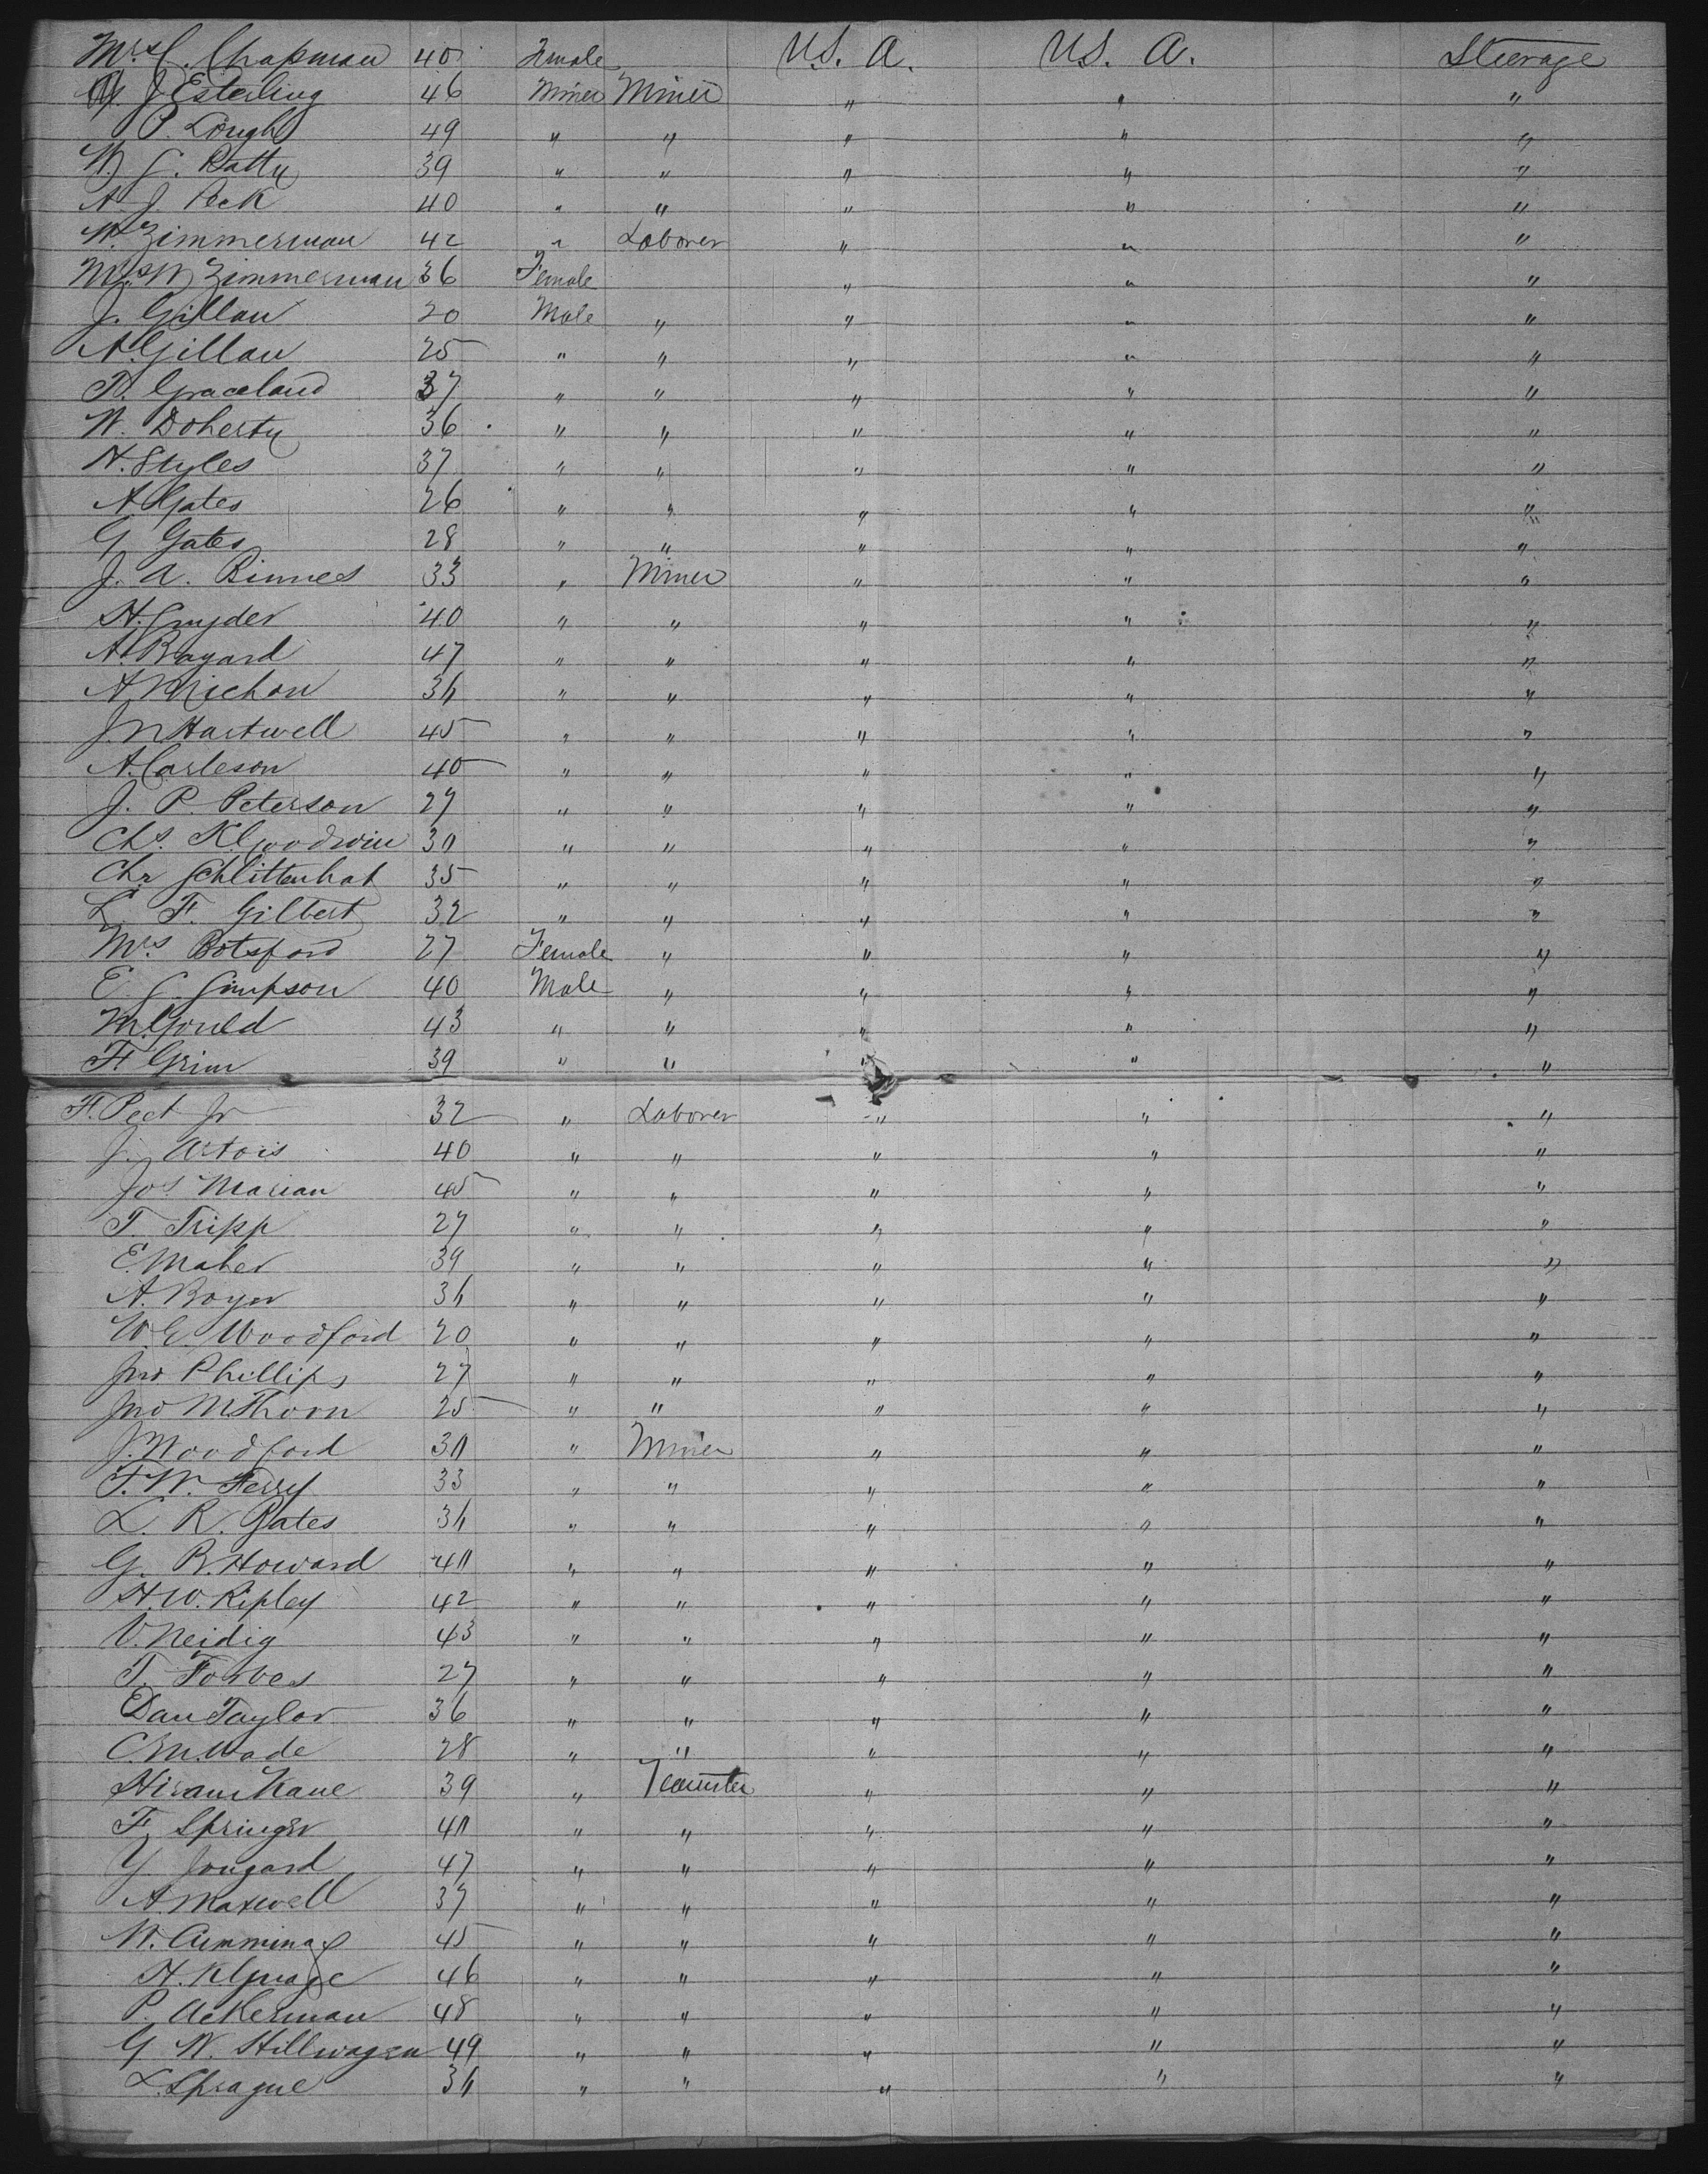 Mrs C. Chapman 40 Female U.S. A. U.S. A. Steerage
J Esterling 46 Miner Miner " " "
P. Lough 49 " " " " "
W. C. Batty 39 " " " " "
A. J. Peck 40 " " " " "
W. Zimmerman 42 " Laborer " " "
Mrs W Zimmerman 36 Female " " "
J. Gillan 20 Male " " " "
A. Gillan 25 " " " " "
T. Graceland 37 " " " " "
W. Doherty 36 " " " " "
H. Styles 37 " " " " "
A. Gates 26 " " " " "
G Gates 28 " " " " "
J. A. Binnes 33 " Miner " " "
H. Snyder 40 " " " " "
A. Bayard 47 " " " " "
A. Michon 34 " " " " "
J. M Hartwell 45 " " " " "
A. Carleson 40 " " " " "
J. P. Peterson 27 " " " " "
Chs. K. Goodwin 30 " " " " "
Chr Schlittenhat 35 " " " " "
L. F. Gilbert 32 " " " " "
Mrs. Botsford 27 Female " " " "
E. G. Simpson 40 Male " " " "
M. Gould 43 " " " " "
F. Grim 39 " " " " "
F. Peet Jr 32 " Laborer " " "
J. Artois 40 " " " " "
Jos Marian 45 " " " " "
T. Tripp 27 " " " " "
E. Maher 39 " " " " "
A. Boyer 34 " " " " "
W. E. Woodford 20 " " " " "
Jno Phillips 27 " " " " "
Jno M Thorn 25 " " " " "
J. Woodford 30 " Miner " " "
F. W. Ferry 33 " " " " "
L. R. Gates 34 " " " " "
G. R. Howard 40 " " " " "
H. W. Ripley 42 " " " " "
V. Neidig 43 " " " " "
T. Forbes 27 " " " " "
Dan Taylor 36 " " " " "
C. M. Wade 28 " " " " "
Hiram Kane 39 " Teamster " " "
F. Springer 40 " " " " "
Y Jougard 47 " " " " "
A. Maxwell 37 " " " " "
W. Cummings 45 " " " " "
H. 46 " " " " "
P. Ackerman 48 " " " " "
G W. Stillwagen 49 " " " " "
L. Sprague 34 " " " " "